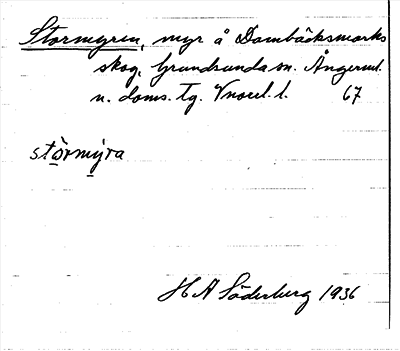 Stormyren, myr å Dombäcksmarks
skog, Grundsunda sn. Ångerml.
n. doms. Tg. Vnorrl. l. 67
stòrmýra
H A Söderberg 1936